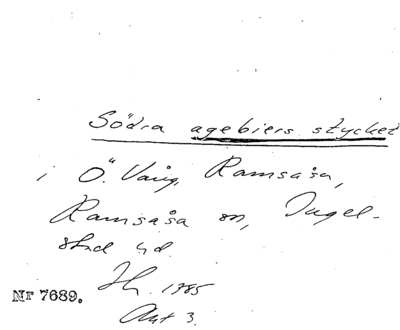 Södra agebiers stycket
i Ö. Vång, Ramsåsa,
Ramsåsa sn, Ingel-
stad hd.
1785
Nr 7689.
Akt 3.